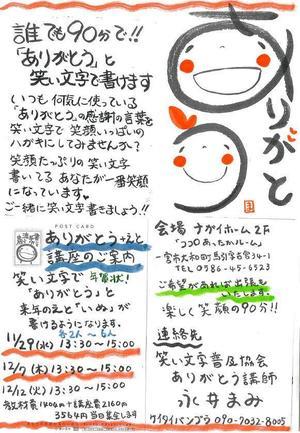 誰でも90分で!!
「ありがとう」と
笑い文字で書けます
いつも何気に使っている
「ありがとう」の感謝の言葉を
笑い文字で笑顔いっぱいの
ハガキにしてみませんか?
笑顔たっぷりの笑い文字
書いてるあなたが一番笑顔
になっています。
ご一緒に笑い文字書きましょう!!
ありがとう
POST CARD
ありがとう+えと
講座のご案内
笑い文字で年賀状!
「ありがとう」と
来年のえと「いぬ」が
書けるようになります。
各2人~6人
11/29(水) 13:30~15:00
12/7(木) 13:30~15:00
12/12(火) 13:30~15:00
教材費1400円+講座費2160円
3564円当日集金します
会場 ナガイホーム2F
「ココロあったかルーム」
一宮市大和町馬引字宮浦34-1
TEL 0586-45-6523
ご希望があれば出張も
いたします。
楽しく笑顔の90分!!
連絡先
笑い文字普及協会
ありがとう講師
永井まみ
ケイタイバンゴウ 090-7032-8005